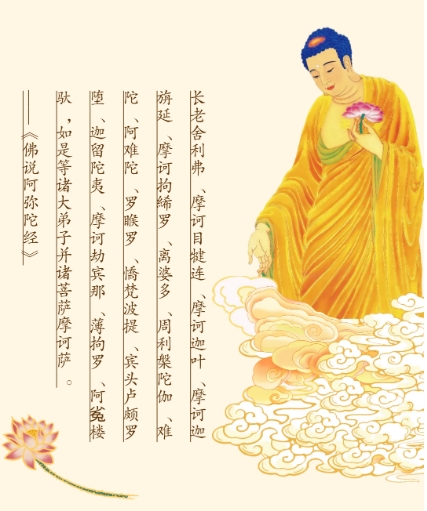 长老舍利弗、摩诃目犍连、摩诃迦叶、摩诃迦
旃延、摩诃拘絺罗、离婆多、周利槃陀伽、难
陀、阿难陀、罗睺罗、憍梵波提、宾头卢颇罗
堕、迦留陀夷、摩诃劫宾那、薄拘罗、阿㝹楼
驮，如是等诸大弟子并诸菩萨摩诃萨。
——《佛说阿弥陀经》